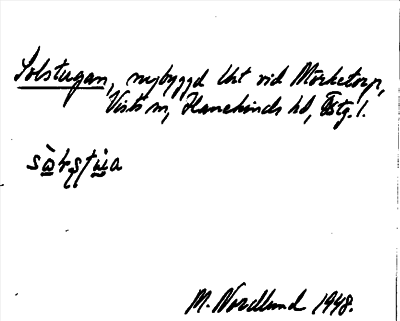 Solstugan, nybyggd lht vid Mörketorp,
Vists sn, Hanekinds hd, Östg. l.
M. Nordlund 1948.